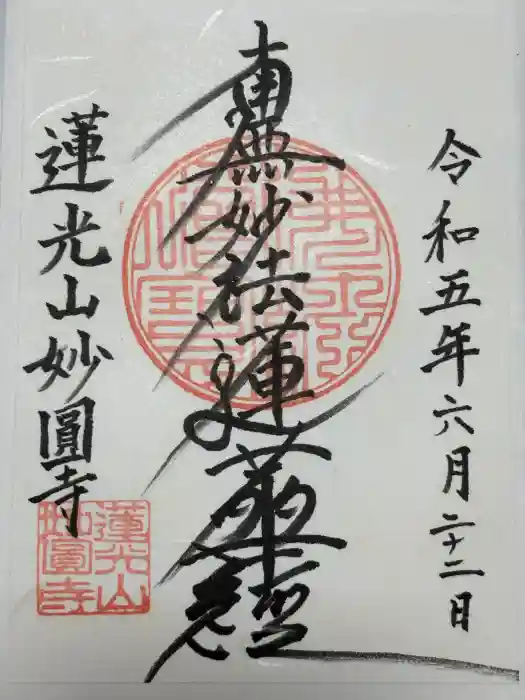 令和五年六月二十二日
南無妙法蓮華經
蓮光山妙圓寺
蓮光山
妙圓寺